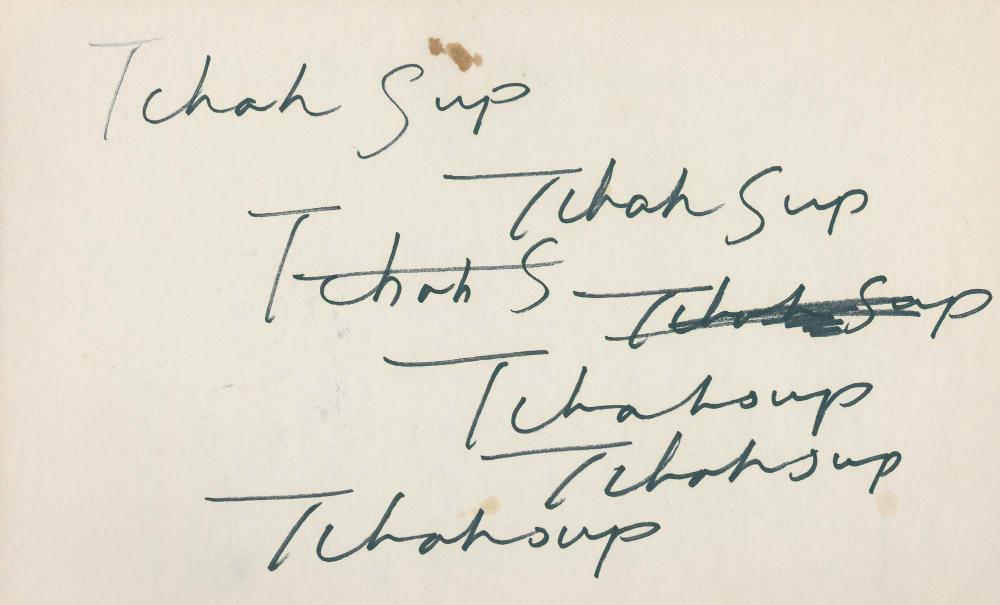 Tchah Sup
Tchah Sup
Tchah S
Tchah Sup
Tchahsup
Tchahsup
Tchahsup